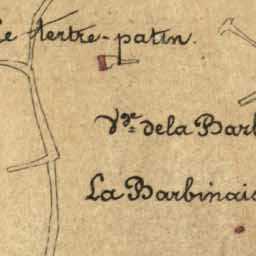 le tertre-patin.
Vge dela Barb
La Barbinais